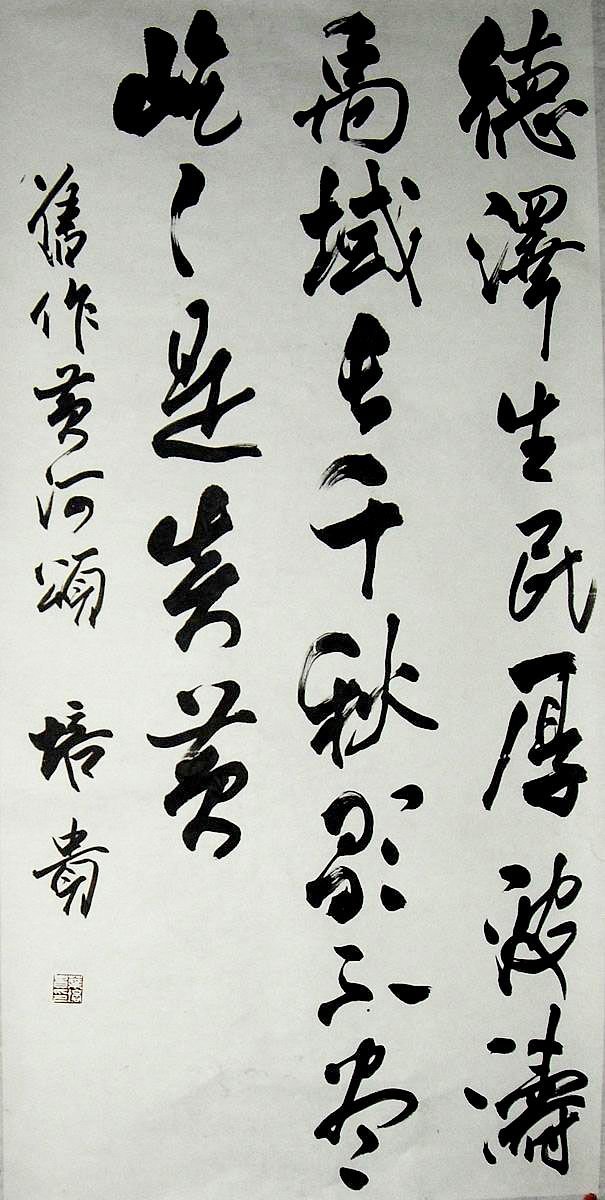 德澤生民厚波濤
禹域長千秋不盡
屹々是炎黃
舊作黃河頌 培貴